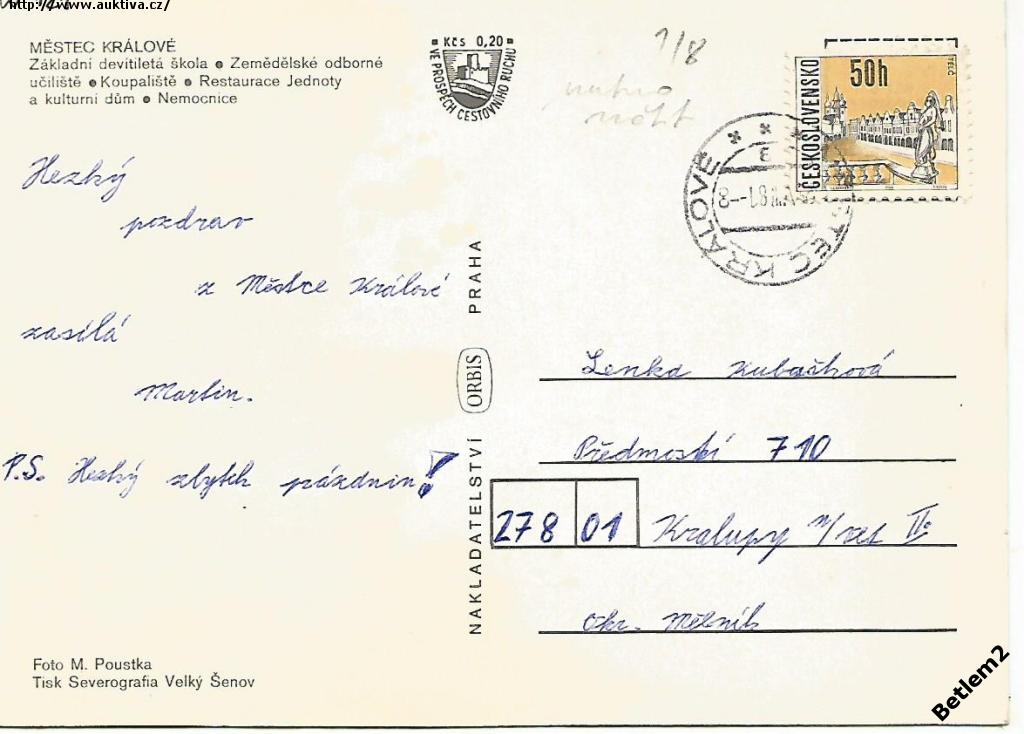 http://www.auktiva.cz/
MĚSTEC KRÁLOVÉ
Základní devítiletá škola ● Zemědělské odborné
učiliště ● Koupaliště ● Restaurace Jednoty
a kulturní dům ● Nemocnice
Kčs 0,20
VE PROSPĚCH CESTOVNÍHO RUCHU
1/8
ČESKOSLOVENSKO
50h
TELČ
MĚSTEC KRÁLOVÉ
Hezký
pozdrav
z Městce Králové
zasílá
Martin.
P.S. Hezký zbytek prázdnin!
NAKLADATELSTVÍ ORBIS PRAHA
Lenka Kubaštová
Předmostí 710
278 01 Kralupy n/vlt II.
Okr. Mělník
Foto M. Poustka
Tisk Severografia Velký Šenov
Betlem2